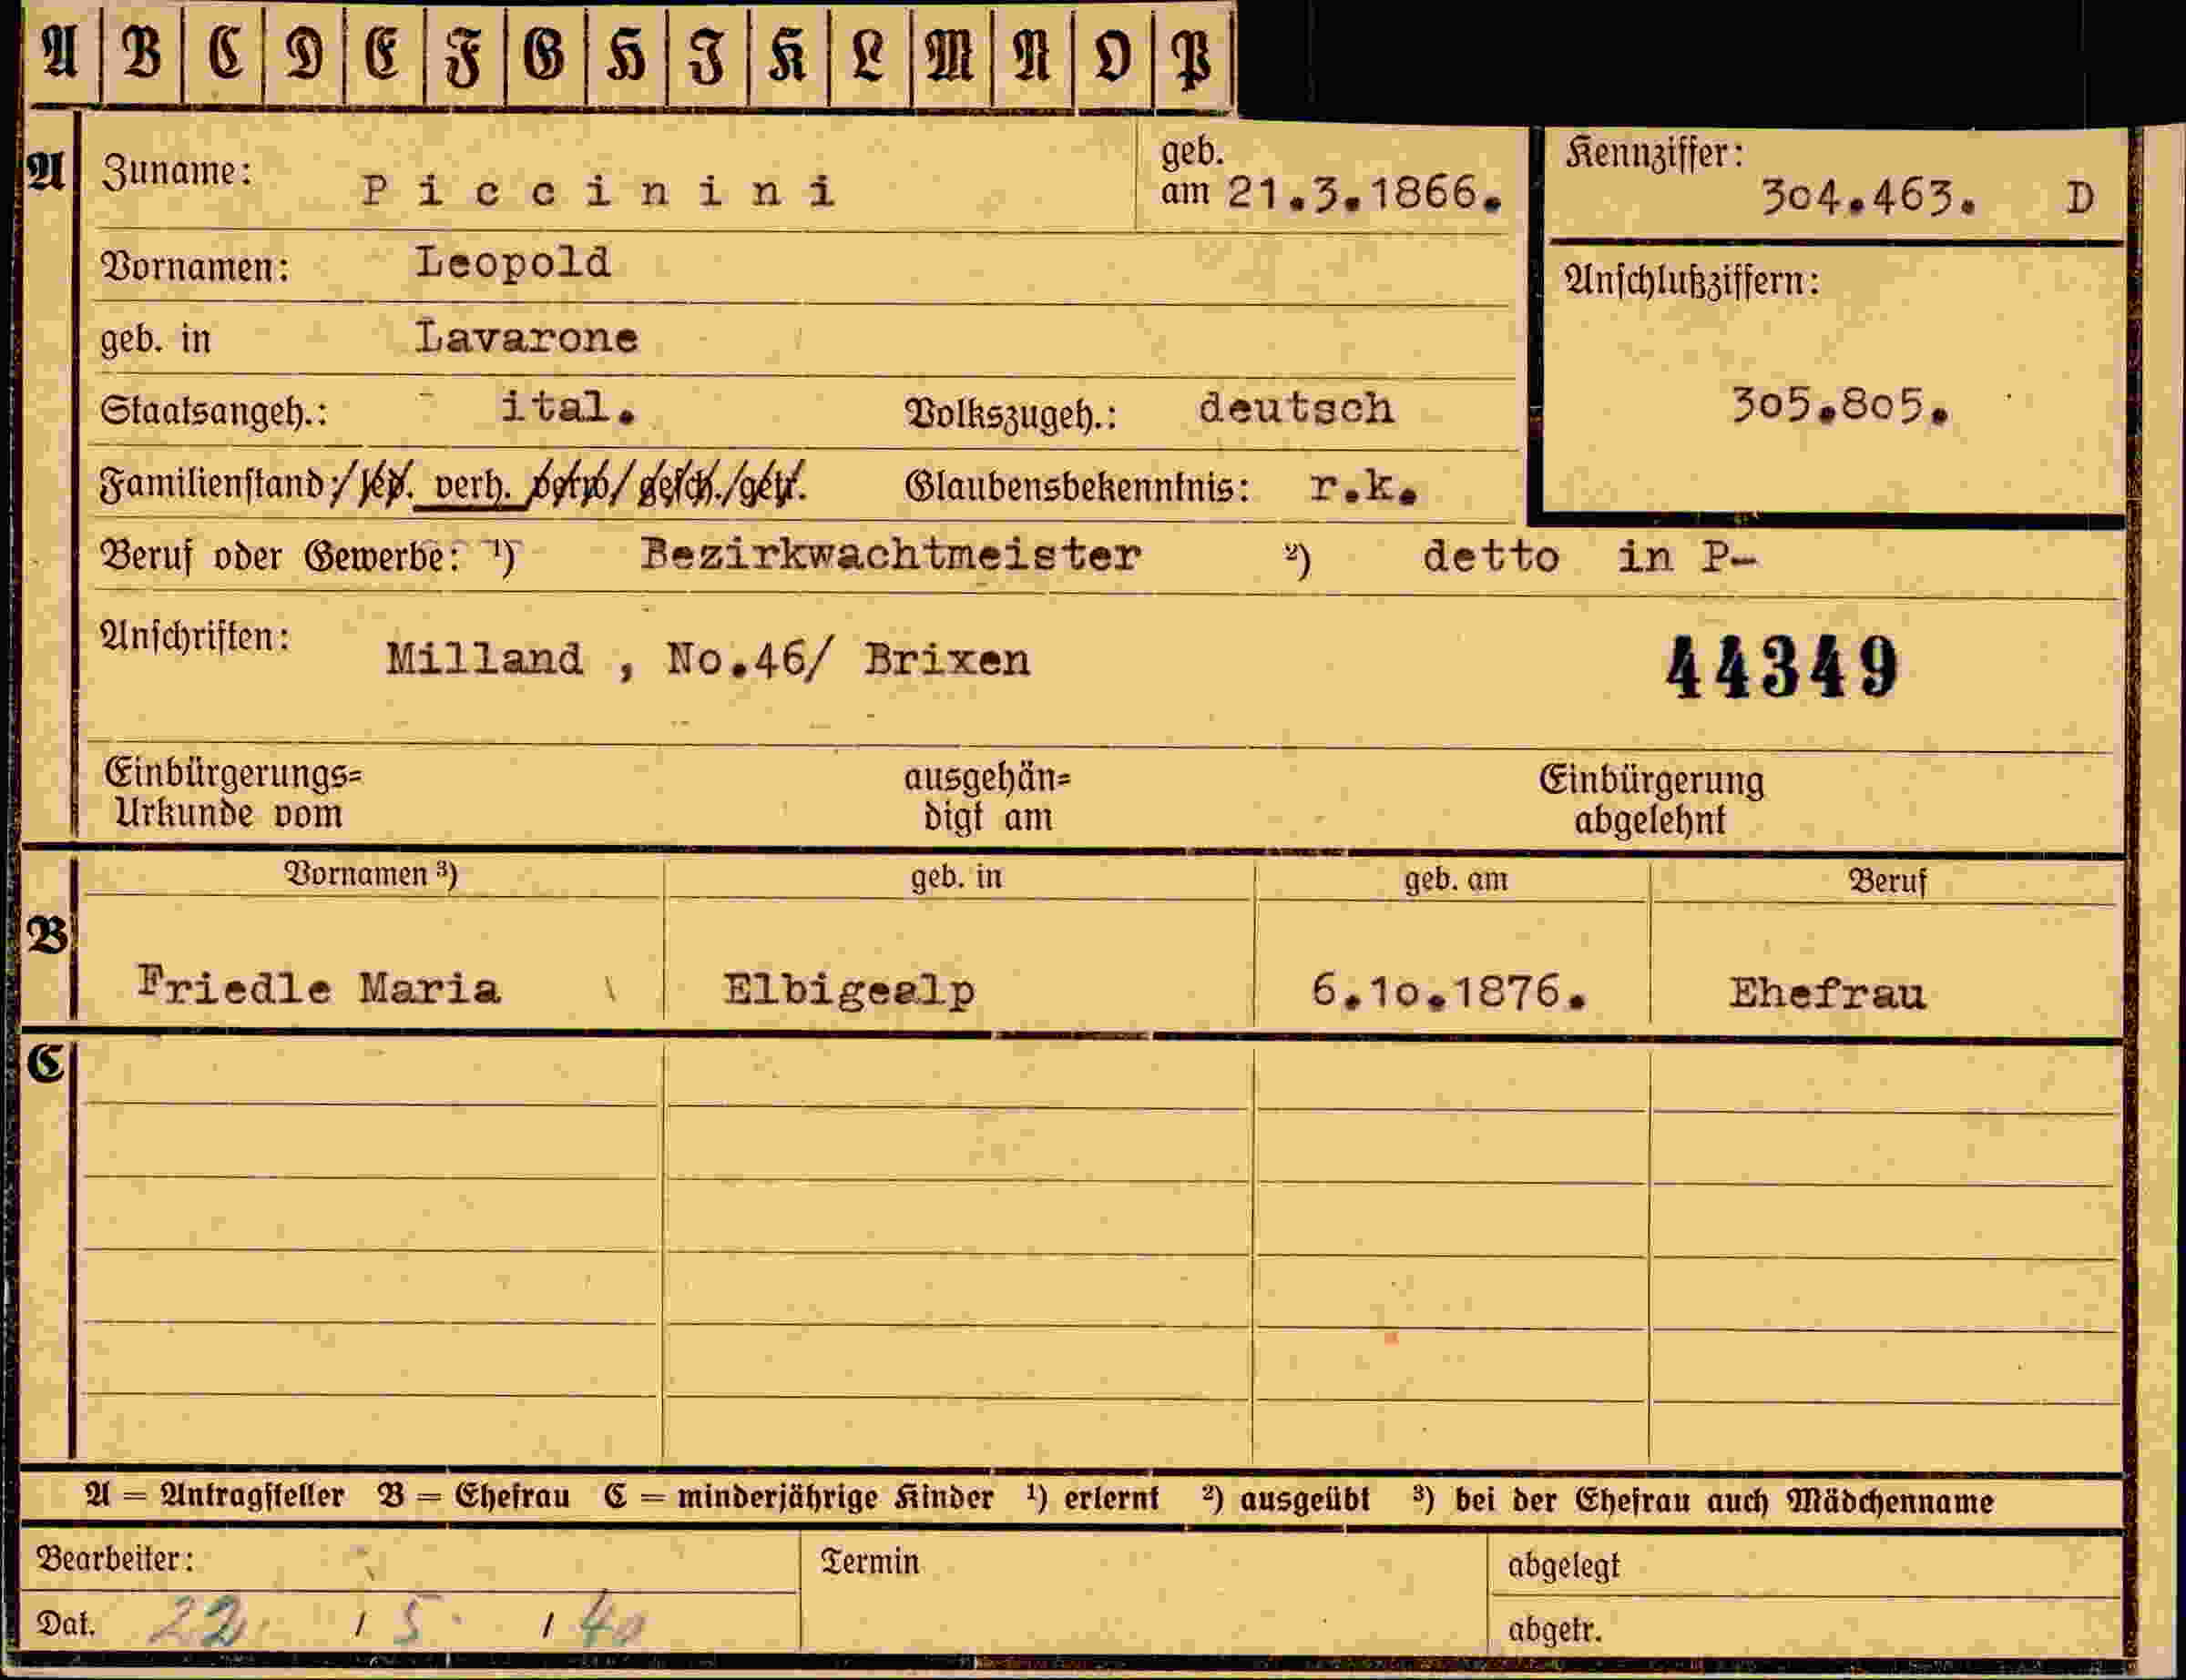 A B C D E F G H I K L M N O P
A Zuname: Piccinini geb. am 21.3.1866. Kennziffer: 304.463. D
Vornamen: Leopold
Anschlußziffern:
geb. in Lavarone
Staatsangeh.: ital. Volkszugeh.: deutsch 305.805.
Familienstand: led. verh. verw. gesch. getr. Glaubensbekenntnis: r.k.
Beruf oder Gewerbe: ¹) Bezirkwachtmeister ²) detto in P-
Anschriften: Milland , No.46/ Brixen 44349
Einbürgerungs= ausgehän= Einbürgerung
Urkunde vom digt am abgelehnt
Vornamen ³) geb. in geb. am Beruf
B
Friedle Maria Elbigealp 6.10.1876. Ehefrau
C
A = Antragsteller B = Ehefrau C = minderjährige Kinder ¹) erlernt ²) ausgeübt ³) bei der Ehefrau auch Mädchenname
Bearbeiter: Termin abgelegt
Dat. 22. / 5. / 40 abgetr.